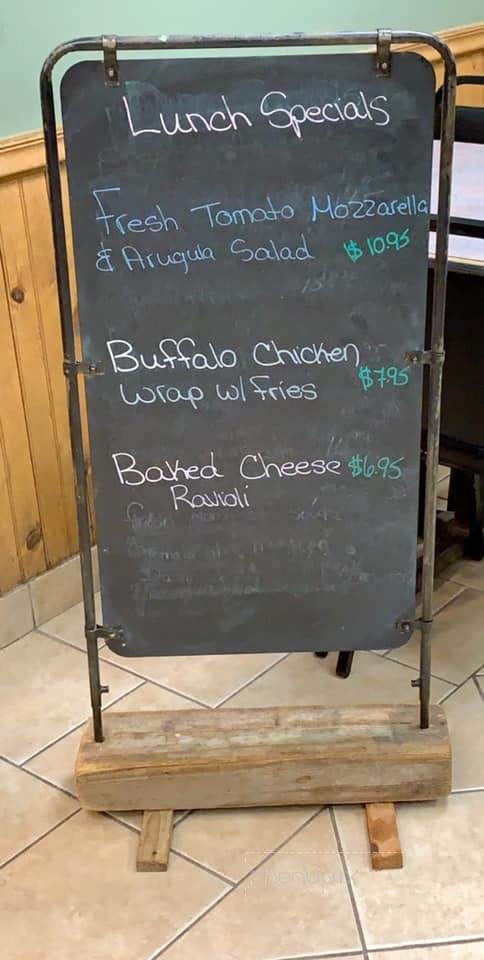 Lunch Specials
Fresh Tomato Mozzarella
& Arugula Salad $10.95
Buffalo Chicken
Wrap w/ Fries $7.95
Baked Cheese $6.95
Ravioli